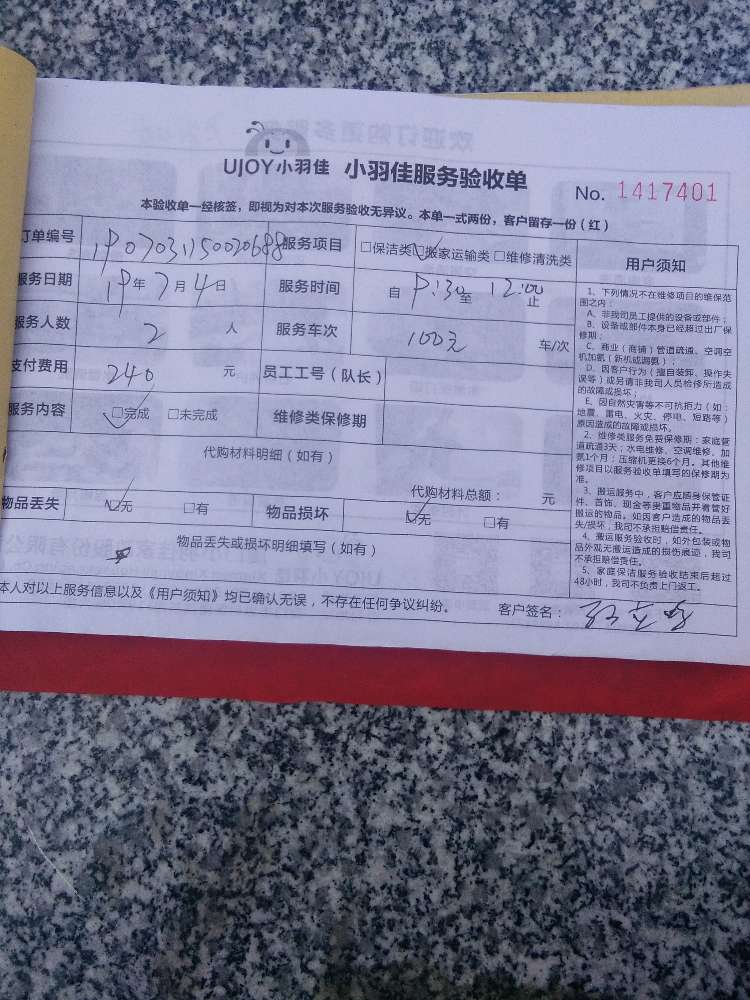 UJOY小羽佳 小羽佳服务验收单
No. 1417401
本验收单一经核签,即视为对本次服务验收无异议。本单一式两份,客户留存一份(红)
订单编号 1907031150020688 服务项目 □保洁类 ☑搬家运输类 □维修清洗类
服务日期 19年7月4日 服务时间 自 9:30 至 12:00 止
服务人数 2 人 服务车次 100元 车/次
支付费用 240 元 员工工号(队长)
服务内容 ☑完成 □未完成 维修类保修期
代购材料明细(如有)
代购材料总额: 元
物品丢失 ☑无 □有 物品损坏 ☑无 □有
物品丢失或损坏明细填写(如有)
本人对以上服务信息以及《用户须知》均已确认无误,不存在任何争议纠纷。 客户签名:
用户须知
1、下列情况不在维修项目的维保范
围之内:
A、非我司员工提供的设备或部件;
B、设备或部件本身已经超过出厂保
修期;
C、商业(商铺)管道疏通、空调空
机加氨(新机或漏氨);
D、因客户行为(擅自装卸、操作失
误等)或另请非我司人员检修所造成
的故障或损坏;
E、因自然灾害等不可抗拒力(如:
地震、雷电、火灾、停电、短路等)
原因造成的故障或损坏。
2、维修类服务免费保修期:家庭管
道疏通3天;水电维修、空调维修、加
氨1个月;压缩机更换6个月。其他维
修项目以服务验收单填写的保修期为
准。
3、搬运服务中,客户应随身保管证
件、首饰、现金等贵重物品并看管好
搬运的物品。如因客户造成的物品丢
失/损坏,我司不承担赔偿责任。
4、搬运服务验收时,如外包装或物
品外观无搬运造成的损伤痕迹,我司
不承担赔偿责任。
5、家庭保洁服务验收结束后超过
48小时,我司不负责上门返工。